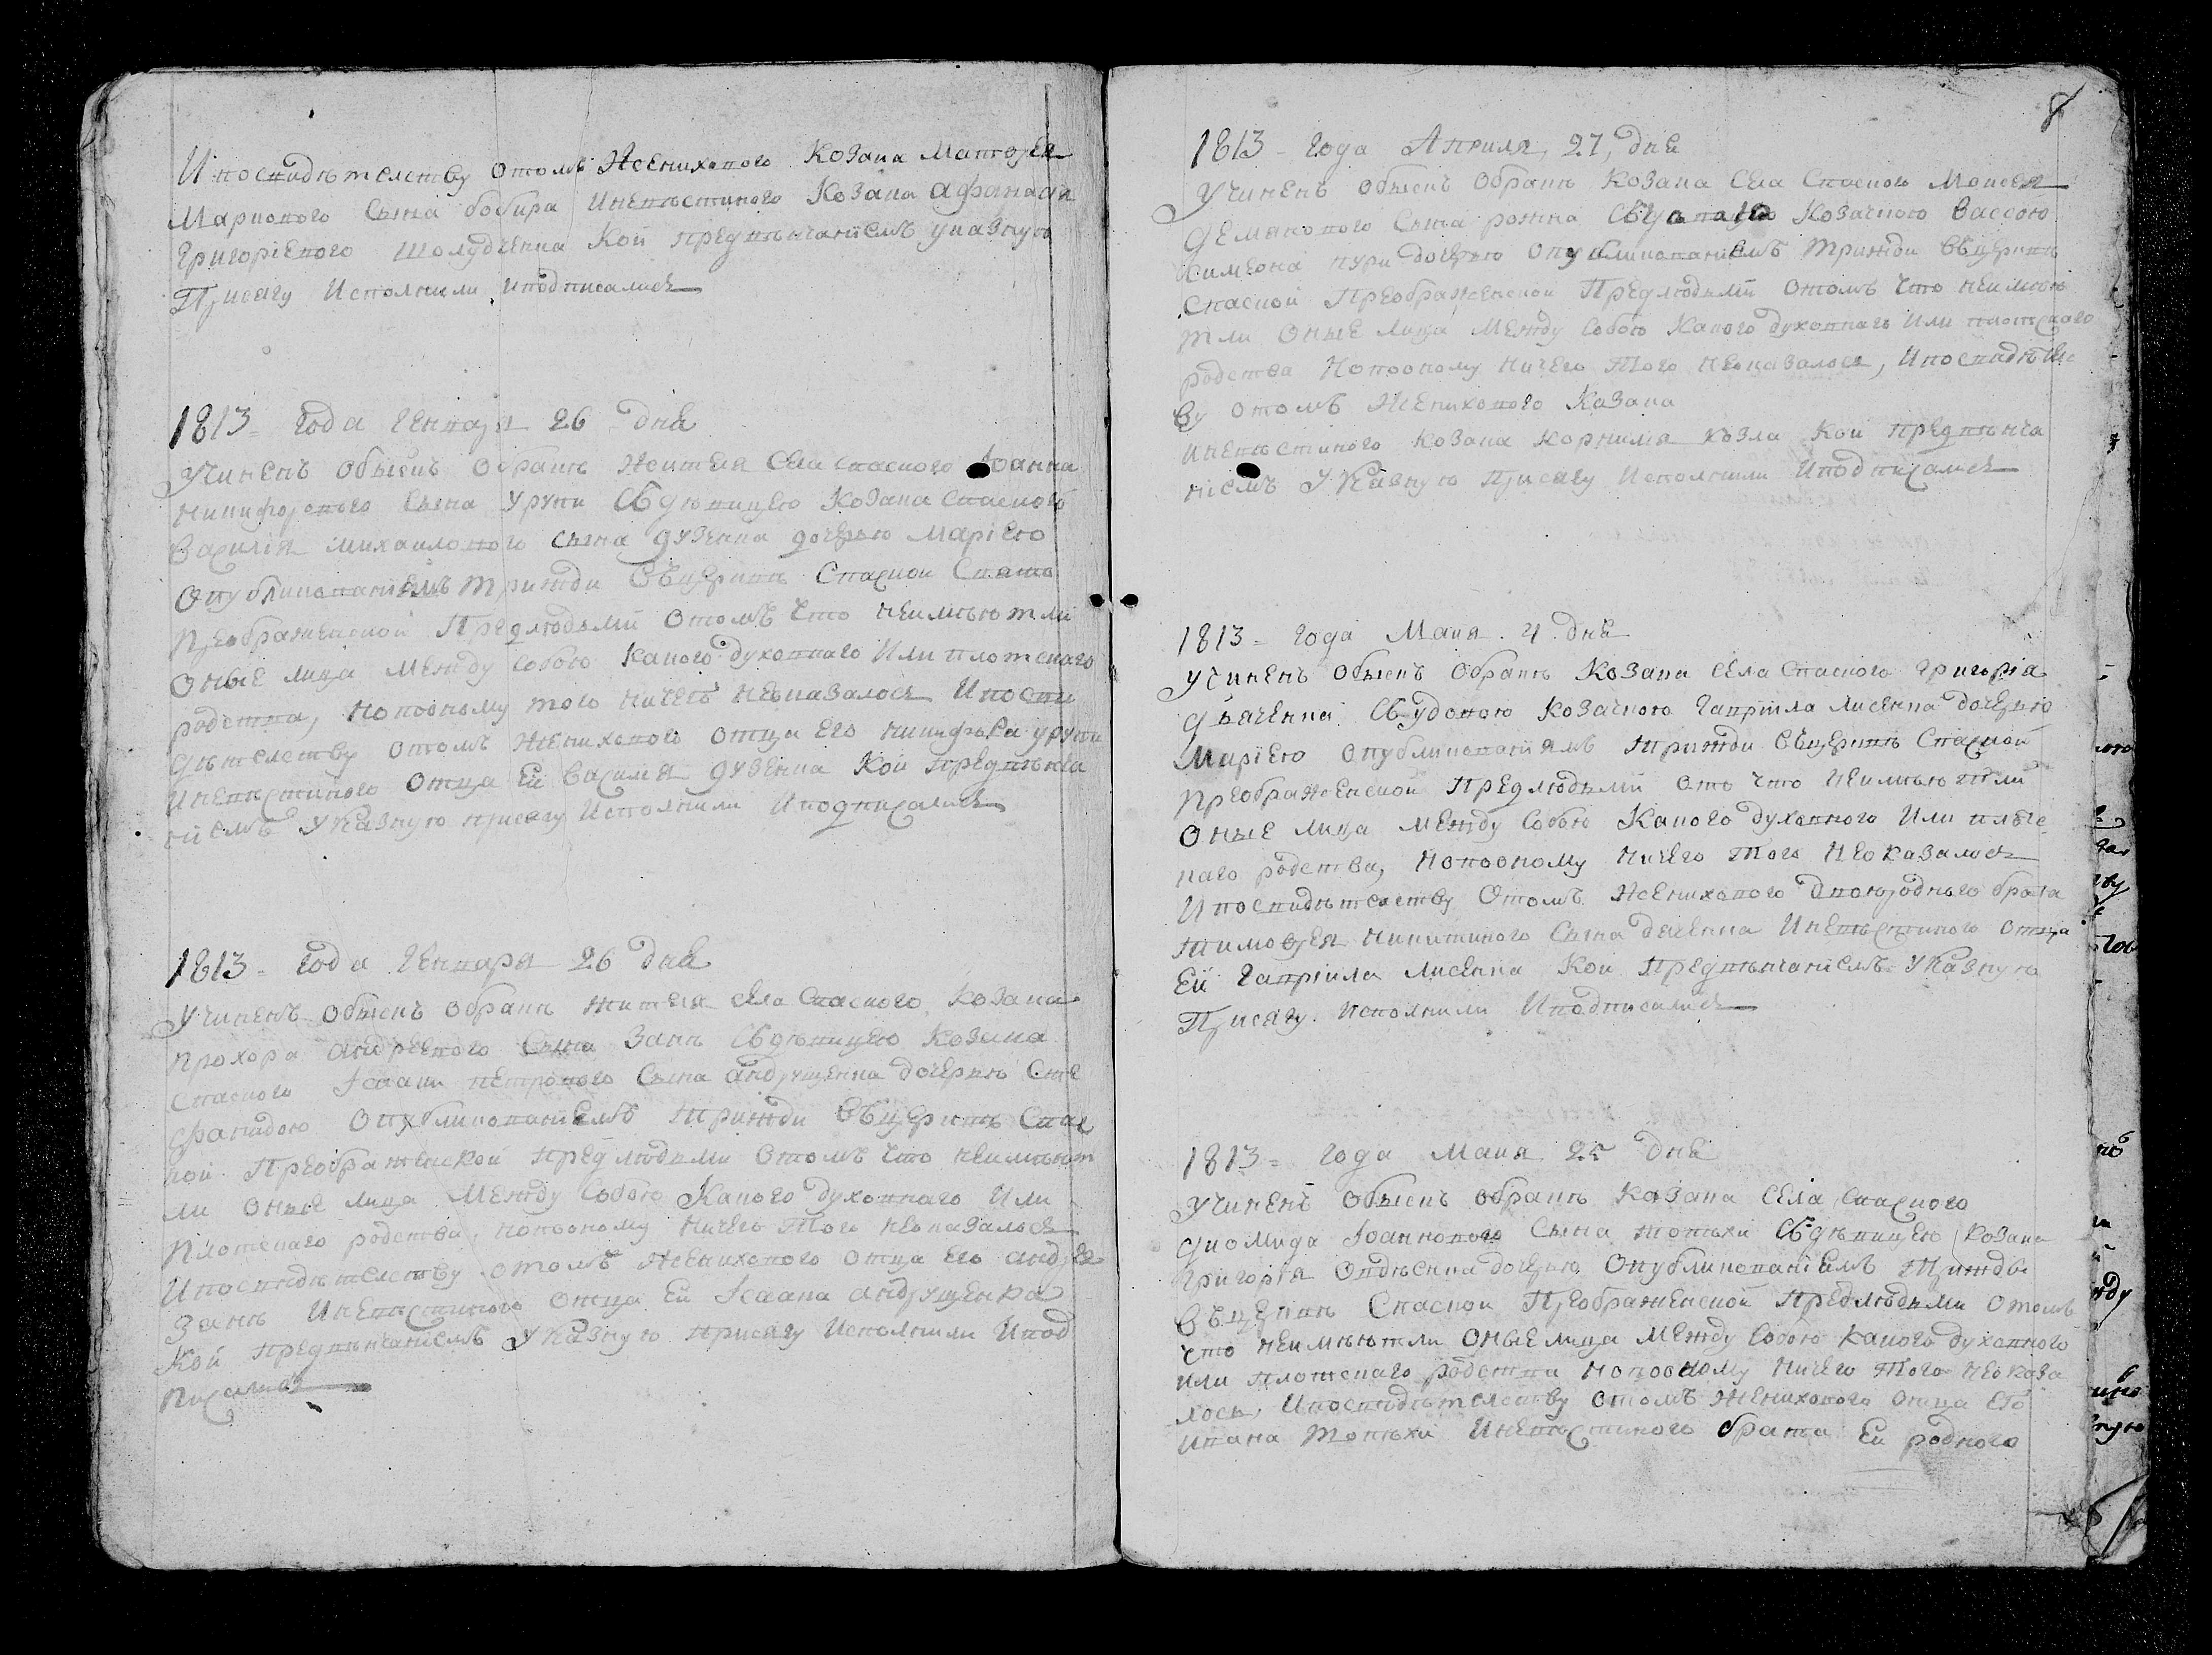 И посвидѣтелству отомъ Женихового Козака Матфея
Маркового Сына бобира Иневѣстиного Козака Афанасія
Григоріевого Шолудченка Кой предвѣнчаніемъ указную
Присягу Исполнили иподписались
1813 Года Генваря 26 Дня
Учиненъ обыскъ обракѣ Жителя Села Спаского Іоанна
никифорового Сына Уруки Сдѣвицею Козака Спаского
Василія михаиловаго сына дузенка дочерью Маріею
Опубликованіемъ трижди Въцеркви Спаской Свято
Преображенской Предлюдьми отомъ что неимѣютли
Оные лица между собою какого духовнаго Или плотскаго
родства, Ноповному того ничего неоказалося Ипосви
дѣтелству отомъ жениховаго отца Его никифора уруки
Иневѣстиного Отца Ей Василія дузенка Кой предвѣнча
ніемъ Указную присягу Исполнили Иподписались
1813 Года Генваря 26 Дня
Учиненъ обыскъ обракѣ жителя села Спаского Козака
Прохора андреевого Сына Заик Сдѣвицею Козака
Спаского Ісааки петрового Сына андрущенка дочерью Сте
фанидою Опубликованіемъ трижди Въцеркви Спас
кой Преображенской предлюдьми отомъ что неимѣют
ли оные лица между собою Какого духовнаго Или
Плотскаго родства, ноповному ничего Того неоказалося
Ипосвидѣтелству отомъ Жениховаго отца Его андрея
Заик Иневѣстиного отца Ей Ісаака андрущенка
Кой предвѣнчаніемъ Указную присягу Исполнили Ипод
писались
8
1813 Года Априля, 27, дня
Учиненъ обыскъ обракѣ Козака Села Спаского Моисея
Демянового Сына рожна Свдовою Козачкою Вассою
Симеона дочерью опубликованіемъ трижди Въцеркви
Спаской Преображенской Предлюдьми отомъ что неимѣю
тли Оные лица Между собою Какого духовнаго Или плотскаго
родства Ноповному ничего Того неоказалося, Ипосвидѣтелс
ву отомъ Жениховаго Козака
Иневѣстиного козака корнилия козла Кой предвѣнча
ніемъ Указную Присягу Исполнили Иподписались
1813 Года Маия 4 дня
Учиненъ обыскъ обракѣ Козака села Спаского григорія
дьяченка Свдовою козачкою Гавріила лисенка дочерью
Маріею опубликованіямъ трижди Въцеркви Спаской
Преображенской предлюдьми ото что Неимѣютли
Оные лица между Собою Какого духовного Или плотс
каго родства, ноповному ничего того Неоказалося
Ипосвидѣтелству Отомъ Жениховаго Двоюродного брата
тимофея никитиного Сына дяченка Иневѣстиного отца
Ей Гавріила лисенка Кой Предвѣнчаніемъ Указную
Присягу исполнили Иподписались
1813 Года Маия 25 Дня
Учиненъ обыскъ обракѣ Казака села Спаского
диомида Іоаннового Сына Сдѣвицею Козака
Григорія дочерью Опубликованіемъ Трижды
Въцеркви Спаской Преображенской Предлюдьми отомъ
что неимѣютли оныелица между собою какого духовного
или плотскаго родства ноповному ничего того неоказа
лось, Ипосвидѣтелству отомъ жениховаго отца Его
Ивана Иневѣстиного брата Ей родного